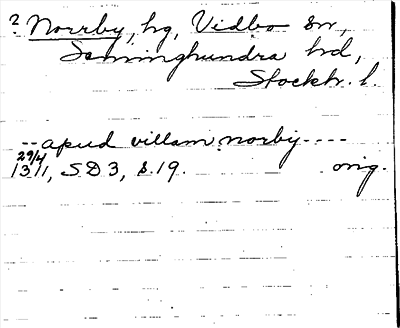 ? Norrby, hg, Vidbo sn,
Seminghundra hd,
Stockh. l.
-- apud villam norby ----
29/4
1311, SD3, s. 19. orig.